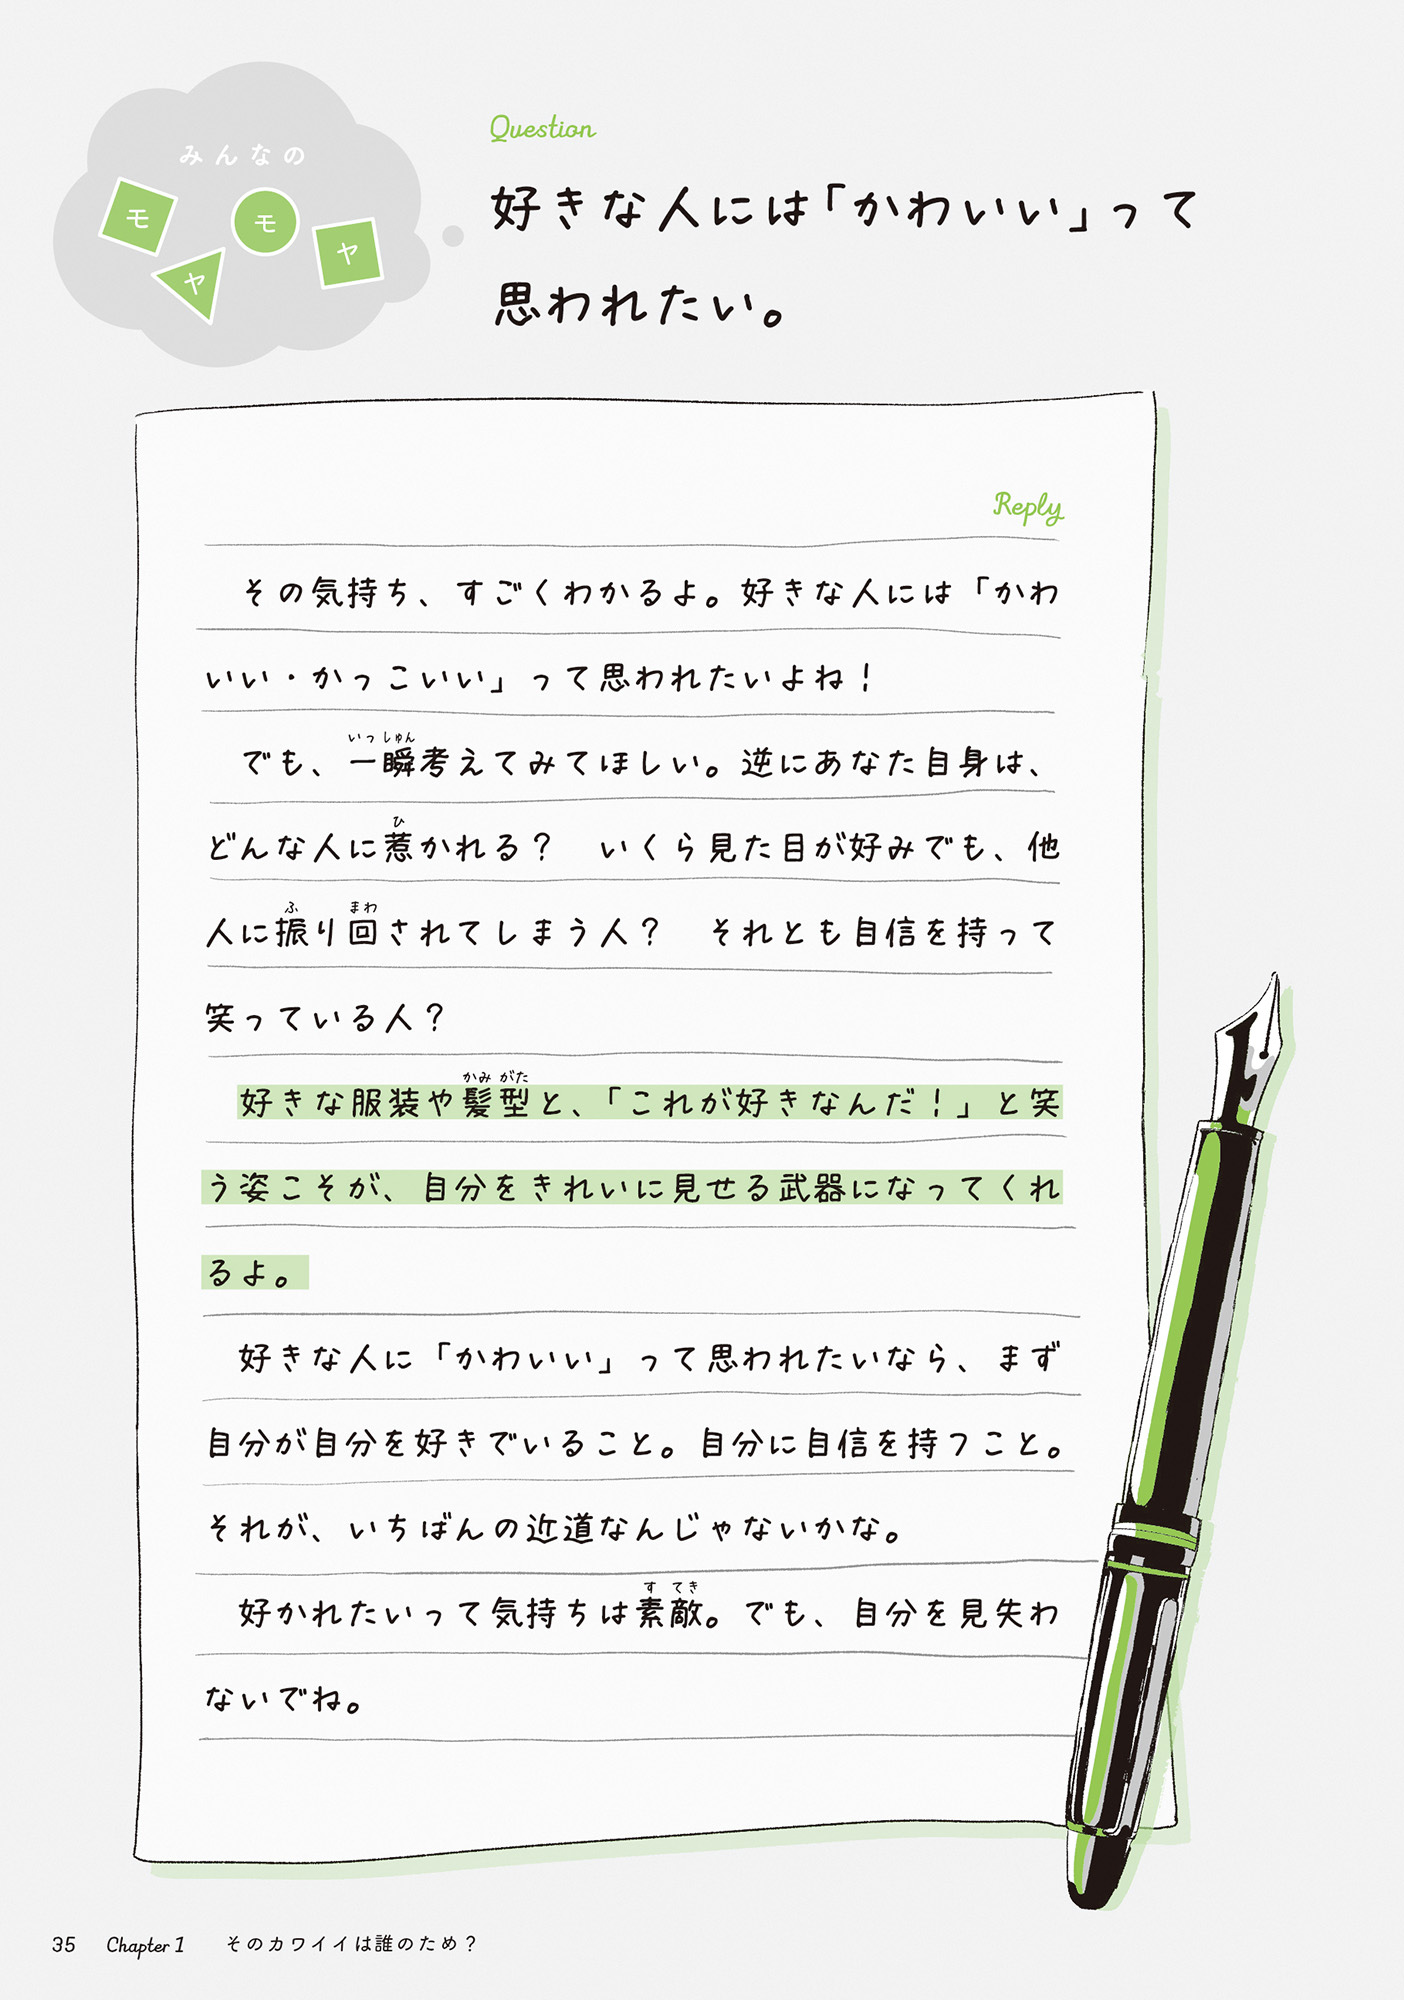 みんなの
モヤモヤ
Question
好きな人には「かわいい」って
思われたい。
Reply
その気持ち、すごくわかるよ。好きな人には「かわ
いい・かっこいい」って思われたいよね！
いっしゅん
でも、一瞬考えてみてほしい。逆にあなた自身は、
ひ
どんな人に惹かれる？　いくら見た目が好みでも、他
ふ まわ
人に振り回されてしまう人？　それとも自信を持って
笑っている人？
かみ がた
好きな服装や髪型と、「これが好きなんだ！」と笑
う姿こそが、自分をきれいに見せる武器になってくれ
るよ。
好きな人に「かわいい」って思われたいなら、まず
自分が自分を好きでいること。自分に自信を持つこと。
それが、いちばんの近道なんじゃないかな。
す てき
好かれたいって気持ちは素敵。でも、自分を見失わ
ないでね。
35 Chapter 1 そのカワイイは誰のため？